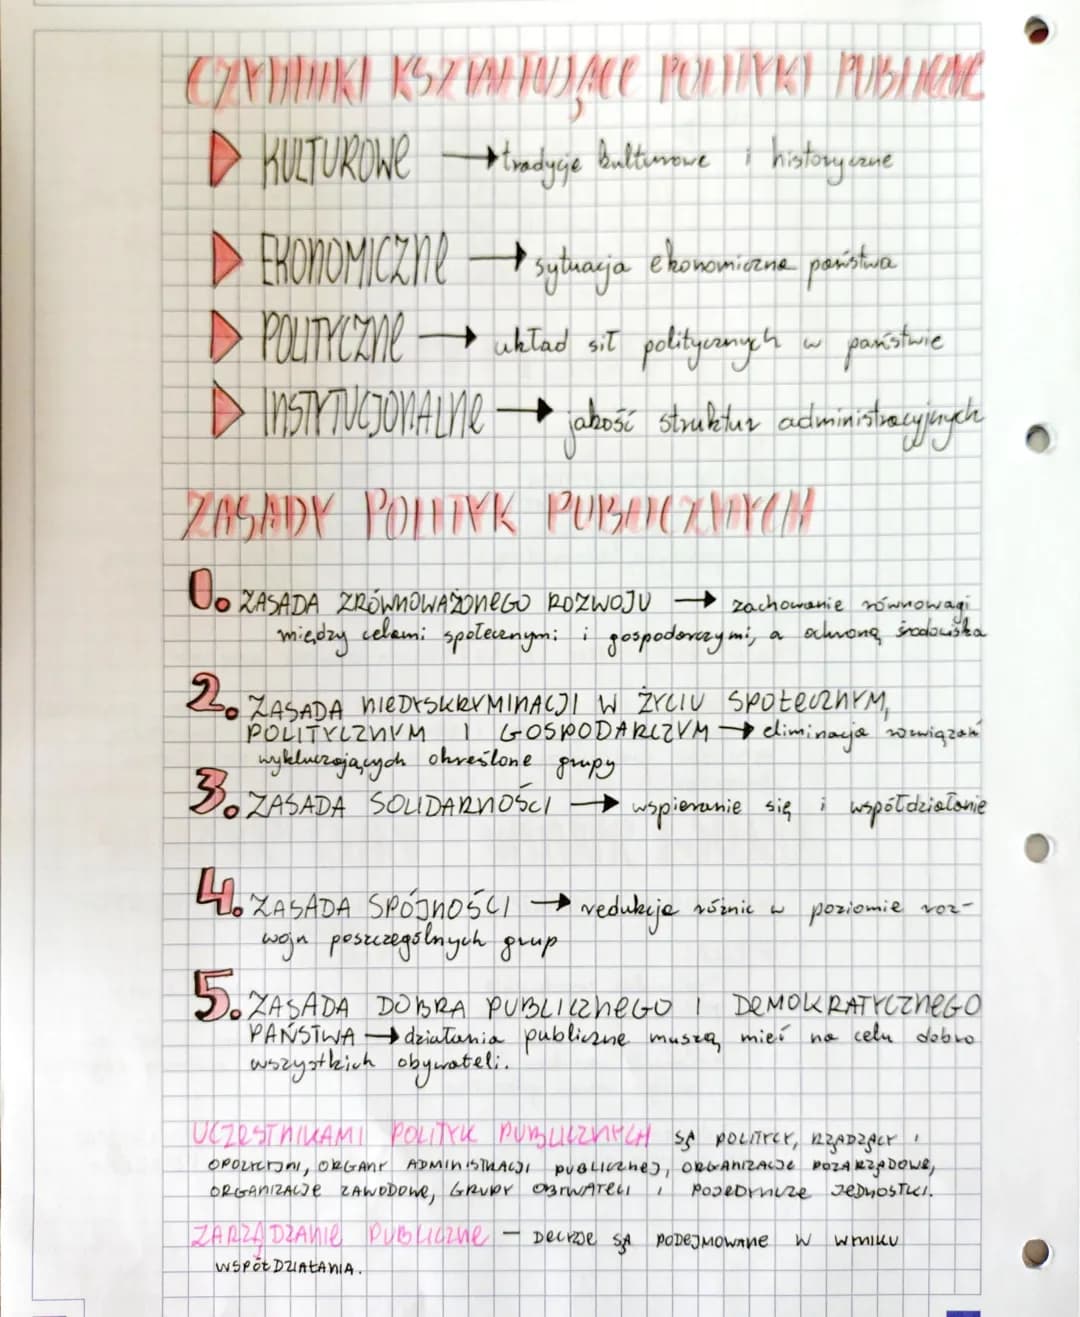 CZYNNIKI KSZTAŁTUJĄCE POLITYKI PUBLICZNE
KULTUROWE → tradycje kulturowe i historyczne
EKONOMICZNE → sytuacja ekonomiczna państwa
POLITYCZNE → układ sił politycznych w państwie
INSTYTUCJONALNE → jakość struktur administracyjnych
ZASADY POLITYK PUBLICZNYCH
1. ZASADA ZRÓWNOWAŻONEGO ROZWOJU → zachowanie równowagi
między celami społecznymi i gospodarczymi, a ochroną środowiska
2. ZASADA NIEDYSKRYMINACJI W ŻYCIU SPOŁECZNYM,
POLITYCZNYM I GOSPODARCZYM → eliminacja rozwiązań
wykluczających określone grupy
3. ZASADA SOLIDARNOŚCI → wspieranie się i współdziałanie
4. ZASADA SPÓJNOŚCI → redukcja różnic w poziomie roz-
woju poszczególnych grup
5. ZASADA DOBRA PUBLICZNEGO I DEMOKRATYCZNEGO
PAŃSTWA → działania publiczne muszą mieć na celu dobro
wszystkich obywateli.
UCZESTNIKAMI POLITYK PUBLICZNYCH SĄ POLITYCY, RZĄDZĄCY I
OPOZYCYJNI, ORGANY ADMINISTRACJI PUBLICZNEJ, ORGANIZACJE POZARZĄDOWE,
ORGANIZACJE ZAWODOWE, GRUPY OBYWATELI I POJEDYNCZE JEDNOSTKI.
ZARZĄDZANIE PUBLICZNE - DECYZJE SĄ PODEJMOWANE W WYNIKU
WSPÓŁDZIAŁANIA.